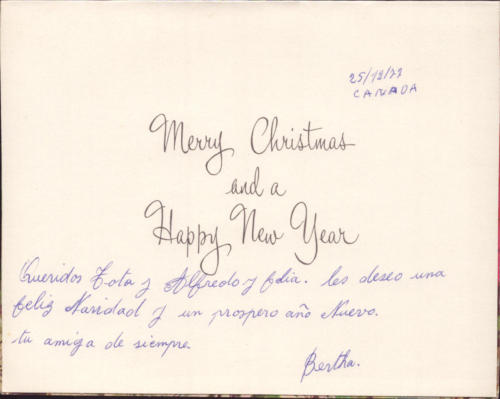 25/12/77
CANADA
Merry Christmas
and a
Happy New Year
Queridos Tota y Alfredo y familia. les deseo una
feliz Navidad y un prospero año Nuevo.
tu amiga de siempre.
Bertha.